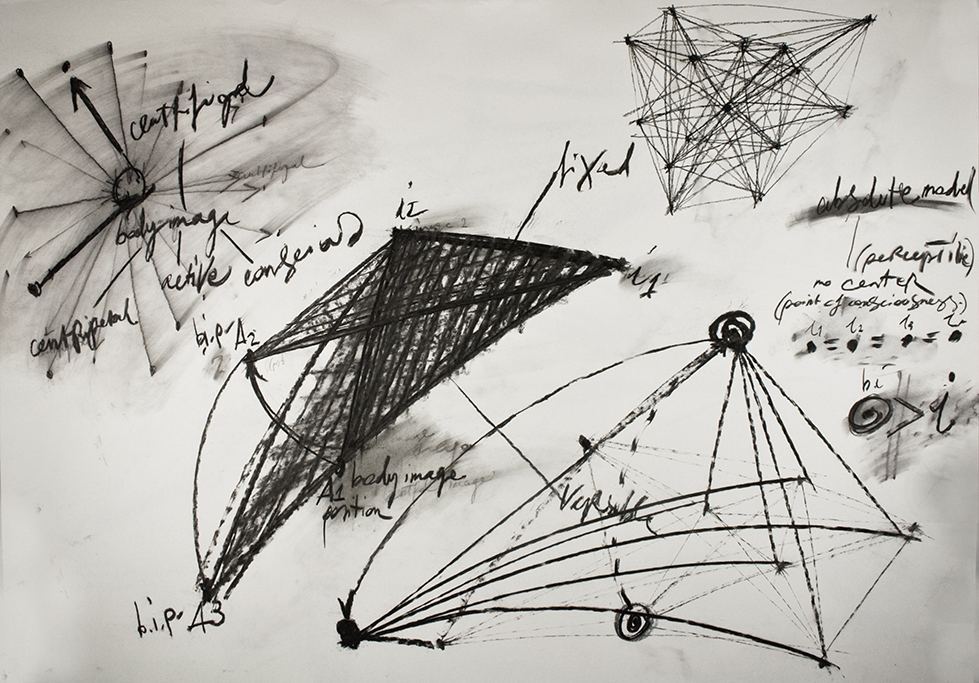 centrifugal
body image
active conscious
centripetal
fixed
absolute model
(perceptive)
no center
(point of consciousness.)
i1 = i2 = i3 =
bi
> i
iI
i1
b.i.p. A2
2
A1 body image
position
b.i.p. A3